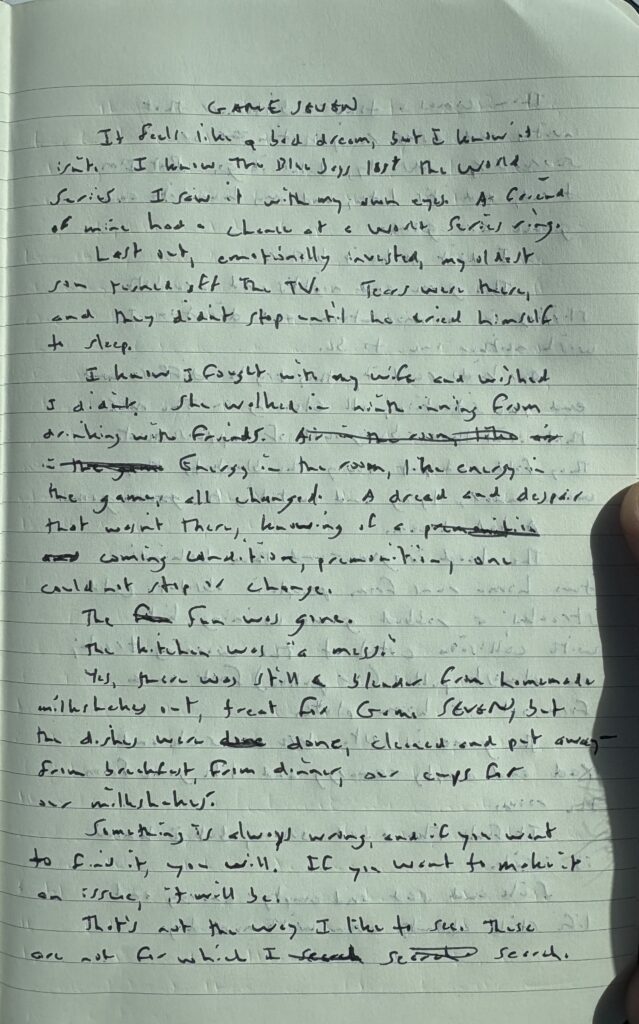 GAME SEVEN
It feels like a bad dream, but I know it
isn't. I know The Blue Jays lost the World
Series. I saw it with my own eyes. A friend
of mine had a chance at a World Series ring.
Last out, emotionally invested, my oldest
son turned off the TV. Tears were there,
and they didn't stop until he cried himself
to sleep.
I know I fought with my wife and wished
I didn't. She walked in ninth inning from
drinking with friends. Air in the room, like air
in the game Energy in the room, like energy in
the game, all changed. A dread and despair
that wasn't there, knowing of a premonition
and coming condition, premonition, one
could not stop or change.
The fun was gone.
The kitchen was "a mess."
Yes, there was still a blender from homemade
milkshakes out, treat for Game SEVEN, but
the dishes were done done, cleaned and put away—
from breakfast, from dinner, our cups for
our milkshakes.
Something is always wrong, and if you want
to find it, you will. If you want to make it
an issue, it will be.
That's not the way I like to see. These
are not for which I search search search.